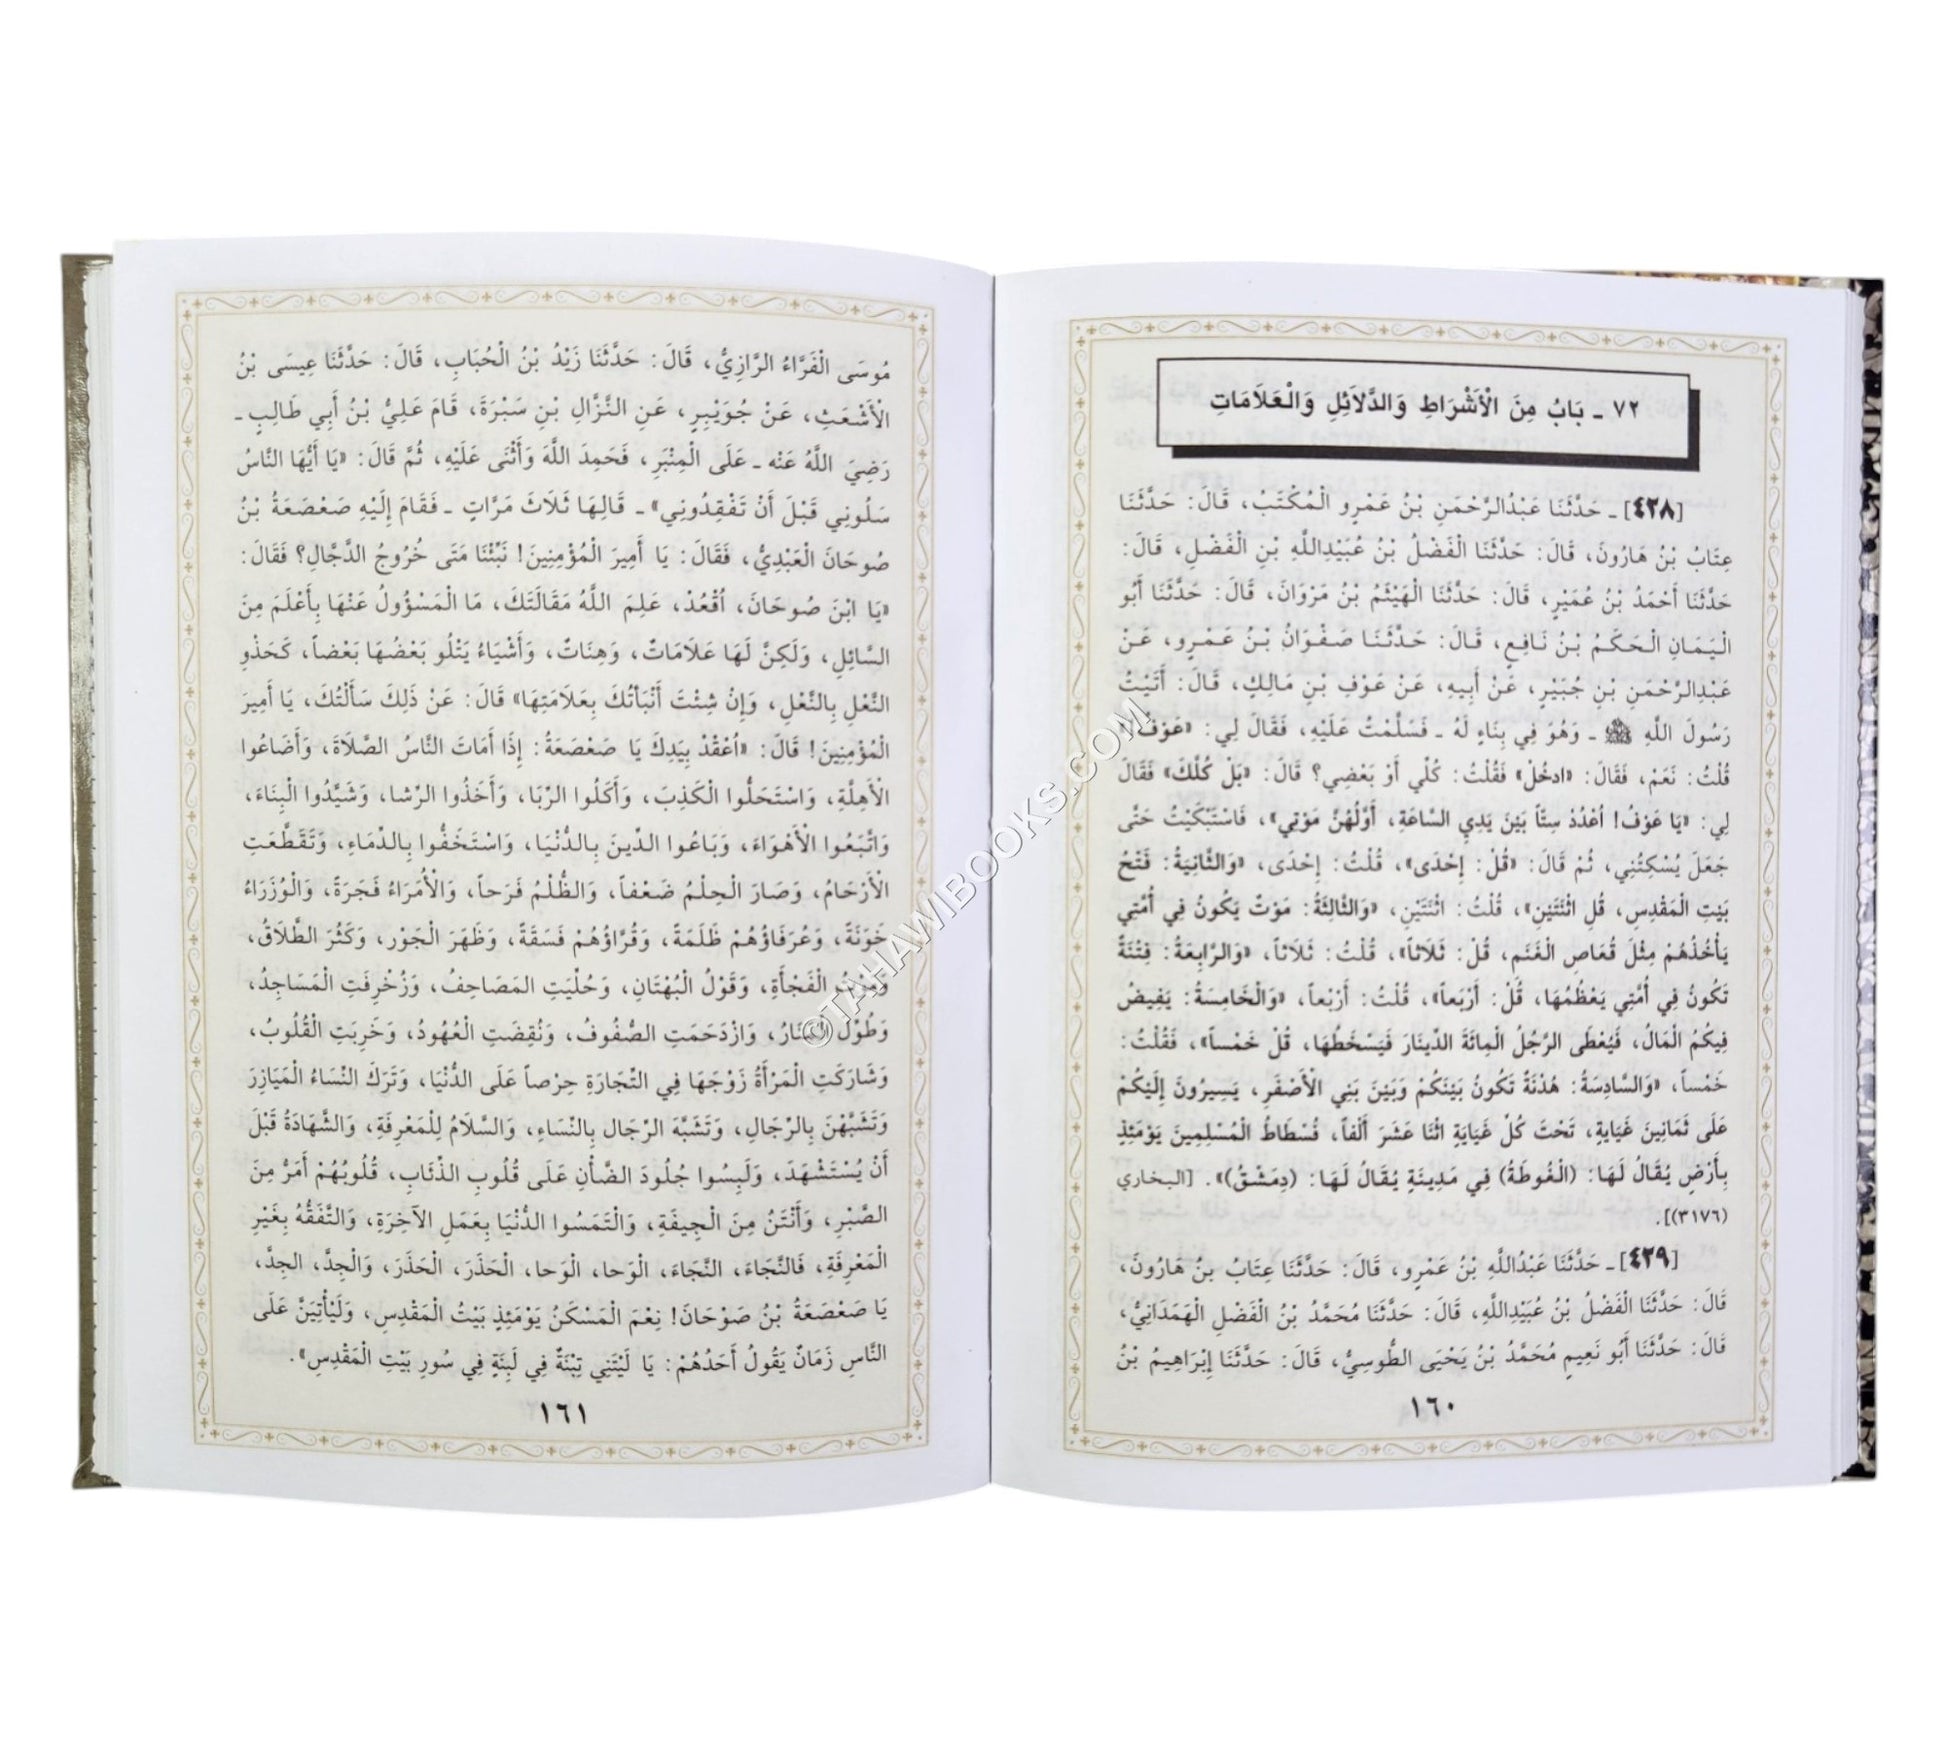 ٧٢ ـ بَابُ مِنَ الْأَشْرَاطِ وَالدَّلَائِلِ وَالْعَلَامَاتِ
[٤٢٨] ـ حَدَّثَنَا عَبْدُالرَّحْمَنِ بْنُ عَمْرِو الْمُكْتَبُ، قَالَ: حَدَّثَنَا
عِتَابُ بْنُ هَارُونَ، قَالَ: حَدَّثَنَا الْفَضْلُ بْنُ عُبَيْدِاللَّهِ بْنِ الْفَضْلِ، قَالَ:
حَدَّثَنَا أَحْمَدُ بْنُ عُمَيْرٍ، قَالَ: حَدَّثَنَا الْهَيْثَمُ بْنُ مَرْوَانَ، قَالَ: حَدَّثَنَا أَبُو
الْيَمَانِ الْحَكَمُ بْنُ نَافِعٍ، قَالَ: حَدَّثَنَا صَفْوَانُ بْنُ عَمْرِو، عَنْ
عَبْدِالرَّحْمَنِ بْنِ جُبَيْرٍ، عَنْ أَبِيهِ، عَنْ عَوْفِ بْنِ مَالِكٍ، قَالَ: أَتَيْتُ
رَسُولَ اللَّهِ ﷺ ـ وَهُوَ فِي بِنَاءٍ لَهُ ـ فَسَلَّمْتُ عَلَيْهِ، فَقَالَ لِي: «عَوْفُ!»
قُلْتُ: نَعَمْ، فَقَالَ: «ادخُلْ» فَقُلْتُ: كُلِّي أَوْ بَعْضِي؟ قَالَ: «بَلْ كُلُّكَ» فَقَالَ
لِي: «يَا عَوْفُ! اُعْدُدْ سِتّاً بَيْنَ يَدِي السَّاعَةِ، أَوَّلُهُنَّ مَوْتِي»، فَاسْتَبْكَيْتُ حَتَّى
جَعَلَ يُسْكِتُنِي، ثُمَّ قَالَ: «قُلْ: إِحْدَى»، قُلْتُ: إِحْدَى، «وَالثَّانِيَةُ: فَتْحُ
بَيْتِ الْمَقْدِسِ، قُلِ اثْنَتَيْنِ»، قُلْتُ: اثْنَتَيْنِ، «وَالثَّالِثَةُ: مَوْتٌ يَكُونُ فِي أُمَّتِي
يَأْخُذُهُمْ مِثْلَ قُعَاصِ الْغَنَمِ، قُلْ: ثَلَاثاً»، قُلْتُ: ثَلَاثاً، «وَالرَّابِعَةُ: فِتْنَةٌ
تَكُونُ فِي أُمَّتِي يَعْظُمُهَا، قُلْ: أَرْبَعاً»، قُلْتُ: أَرْبَعاً، «وَالْخَامِسَةُ: يَفِيضُ
فِيكُمُ الْمَالُ، فَيُعْطَى الرَّجُلُ الْمِائَةَ الدِّينَارَ فَيَسْخَطُهَا، قُلْ خَمْساً»، فَقُلْتُ:
خَمْساً، «وَالسَّادِسَةُ: هُدْنَةٌ تَكُونُ بَيْنَكُمْ وَبَيْنَ بَنِي الْأَصْفَرِ، يَسِيرُونَ إِلَيْكُمْ
عَلَى ثَمَانِينَ غَيَايَةٍ، تَحْتَ كُلِّ غَيَايَةٍ اثْنَا عَشَرَ أَلْفاً، فُسْطَاطُ الْمُسْلِمِينَ يَوْمَئِذٍ
بِأَرْضٍ يُقَالُ لَهَا: (الْغُوطَةُ) فِي مَدِينَةٍ يُقَالُ لَهَا: (دِمَشْقُ)». [البخاري
(٣١٧٦)].
[٤٢٩] ـ حَدَّثَنَا عَبْدُاللَّهِ بْنُ عَمْرِو، قَالَ: حَدَّثَنَا عِتَابُ بْنُ هَارُونَ،
قَالَ: حَدَّثَنَا الْفَضْلُ بْنُ عُبَيْدِاللَّهِ، قَالَ: حَدَّثَنَا مُحَمَّدُ بْنُ الْفَضْلِ الْهَمَدَانِيُّ،
قَالَ: حَدَّثَنَا أَبُو نَعِيمٍ مُحَمَّدُ بْنُ يَحْيَى الطُّوسِيُّ، قَالَ: حَدَّثَنَا إِبْرَاهِيمُ بْنُ
١٦٠
مُوسَى الْفَرَّاءُ الرَّازِيُّ، قَالَ: حَدَّثَنَا زَيْدُ بْنُ الْحُبَابِ، قَالَ: حَدَّثَنَا عِيسَى بْنُ
الْأَشْعَثِ، عَنْ جُوَيْبِرٍ، عَنِ النَّزَّالِ بْنِ سَبْرَةَ، قَامَ عَلِيُّ بْنُ أَبِي طَالِبٍ ـ
رَضِيَ اللَّهُ عَنْه ـ عَلَى الْمِنْبَرِ، فَحَمِدَ اللَّهَ وَأَثْنَى عَلَيْهِ، ثُمَّ قَالَ: «يَا أَيُّهَا النَّاسُ
سَلُونِي قَبْلَ أَنْ تَفْقِدُونِي» ـ قَالِهَا ثَلَاثَ مَرَّاتٍ ـ فَقَامَ إِلَيْهِ صَعْصَعَةُ بْنُ
صُوحَانَ الْعَبْدِيُّ، فَقَالَ: يَا أَمِيرَ الْمُؤْمِنِينَ! نَبِّئْنَا مَتَى خُرُوجُ الدَّجَّالِ؟ فَقَالَ:
«يَا ابْنَ صُوحَانَ، اُقْعُدْ، عَلِمَ اللَّهُ مَقَالَتَكَ، مَا الْمَسْؤُولُ عَنْهَا بِأَعْلَمَ مِنَ
السَّائِلِ، وَلَكِنَّ لَهَا عَلَامَاتٌ، وَهِنَاتٌ، وَأَشْيَاءُ يَتْلُو بَعْضُهَا بَعْضاً، كَحَذْوِ
النَّعْلِ بِالنَّعْلِ، وَإِنْ شِئْتَ أَنْبَأْتُكَ بِعَلَامَتِهَا» قَالَ: عَنْ ذَلِكَ سَأَلْتُكَ، يَا أَمِيرَ
الْمُؤْمِنِينَ! قَالَ: «اُعْقُدْ بِيَدِكَ يَا صَعْصَعَةُ: إِذَا أَمَاتَ النَّاسُ الصَّلَاةَ، وَأَضَاعُوا
الْأَهِلَّةِ، وَاسْتَحَلُّوا الْكَذِبَ، وَأَكَلُوا الرِّبَا، وَأَخَذُوا الرُّشا، وَشَيَّدُوا الْبِنَاءَ،
وَاتَّبَعُوا الْأَهْوَاءَ، وَبَاعُوا الدِّينَ بِالدُّنْيَا، وَاسْتَخَفُّوا بِالدِّمَاءِ، وَتَقَطَّعَتِ
الْأَرْحَامُ، وَصَارَ الْحِلْمُ ضَعْفاً، وَالظُّلْمُ فَرَحاً، وَالْأُمَرَاءُ فَجَرَةً، وَالْوُزَرَاءُ
خَوَنَةً، وَعُرَفَاؤُهُمْ ظَلَمَةً، وَقُرَّاؤُهُمْ فَسَقَةً، وَظَهَرَ الْجَوْر، وَكَثُرَ الطَّلَاقُ،
وَمَوْتُ الْفَجْأَةِ، وَقَوْلُ الْبُهْتَانِ، وَحُلِّيَتِ الْمَصَاحِفُ، وَزُخْرِفَتِ الْمَسَاجِدُ،
وَطُوِّلَ الْمَنَارُ، وَازْدَحَمَتِ الصُّفُوفُ، وَنُقِضَتِ الْعُهُودُ، وَخَرِبَتِ الْقُلُوبُ،
وَشَارَكَتِ الْمَرْأَةُ زَوْجَهَا فِي التِّجَارَةِ حِرْصاً عَلَى الدُّنْيَا، وَتَرَكَ النِّسَاءُ الْمَيَازِرَ
وَتَشَبَّهْنَ بِالرِّجَالِ، وَتَشَبَّهَ الرِّجَال بِالنِّسَاءِ، وَالسَّلَامُ لِلْمَعْرِفَةِ، وَالشَّهَادَةُ قَبْلَ
أَنْ يُسْتَشْهَدَ، وَلَبِسُوا جُلُودَ الضَّأْنِ عَلَى قُلُوبِ الذِّئَابِ، قُلُوبُهُمْ أَمَرُّ مِنَ
الصَّبْرِ، وَأَنْتَنُ مِنَ الْجِيفَةِ، وَالْتَمَسُوا الدُّنْيَا بِعَمَلِ الآخِرَةِ، وَالتَّفَقُّهُ بِغَيْرِ
الْمَعْرِفَةِ، فَالنَّجَاءَ، النَّجَاءَ، الْوَحا، الْوَحا، الْحَذَرَ، الْحَذَرَ، وَالْجِدَّ، الجِدَّ،
يَا صَعْصَعَةُ بْنُ صَوْحَانَ! نِعْمَ الْمَسْكَنُ يَوْمَئِذٍ بَيْتُ الْمَقْدِسِ، وَلَيْأْتِيَنَّ عَلَى
النَّاسِ زَمَانٌ يَقُولُ أَحَدُهُمْ: يَا لَيْتَنِي تِبْنَةٌ فِي لَبِنَةٍ فِي سُورِ بَيْتِ الْمَقْدِسِ».
١٦١
©TAHAWIBOOKS.COM